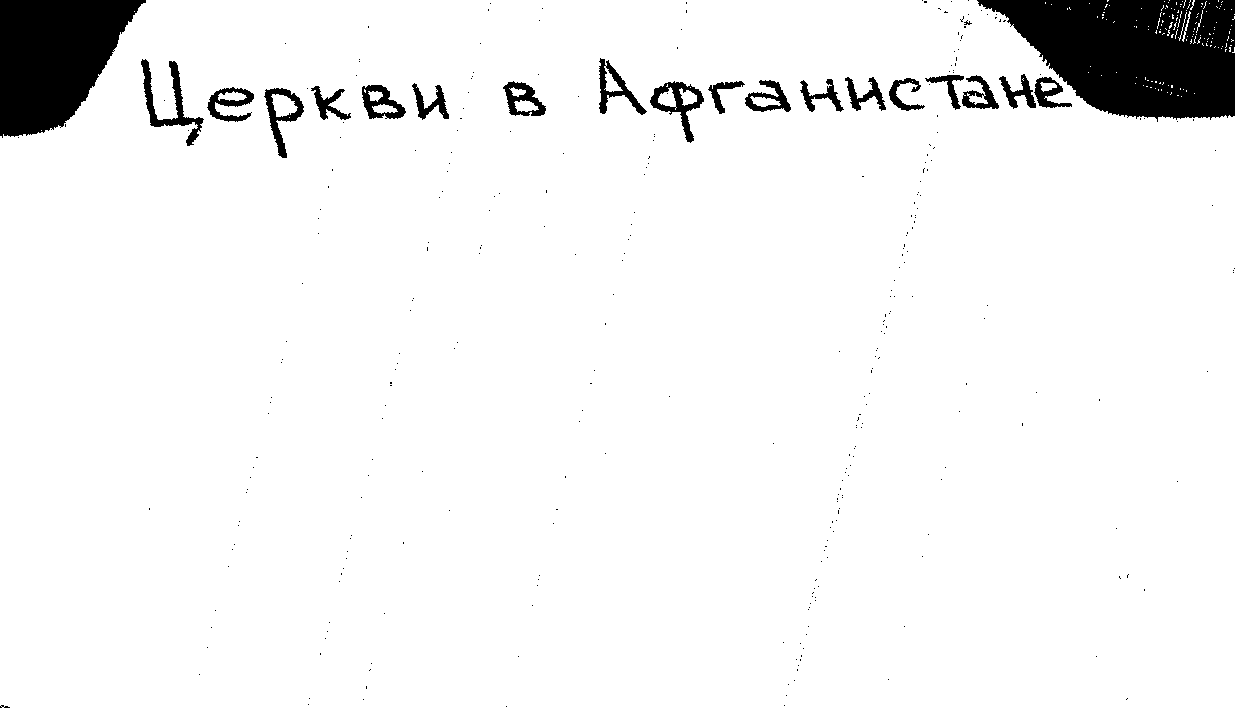 Церкви в Афганистане